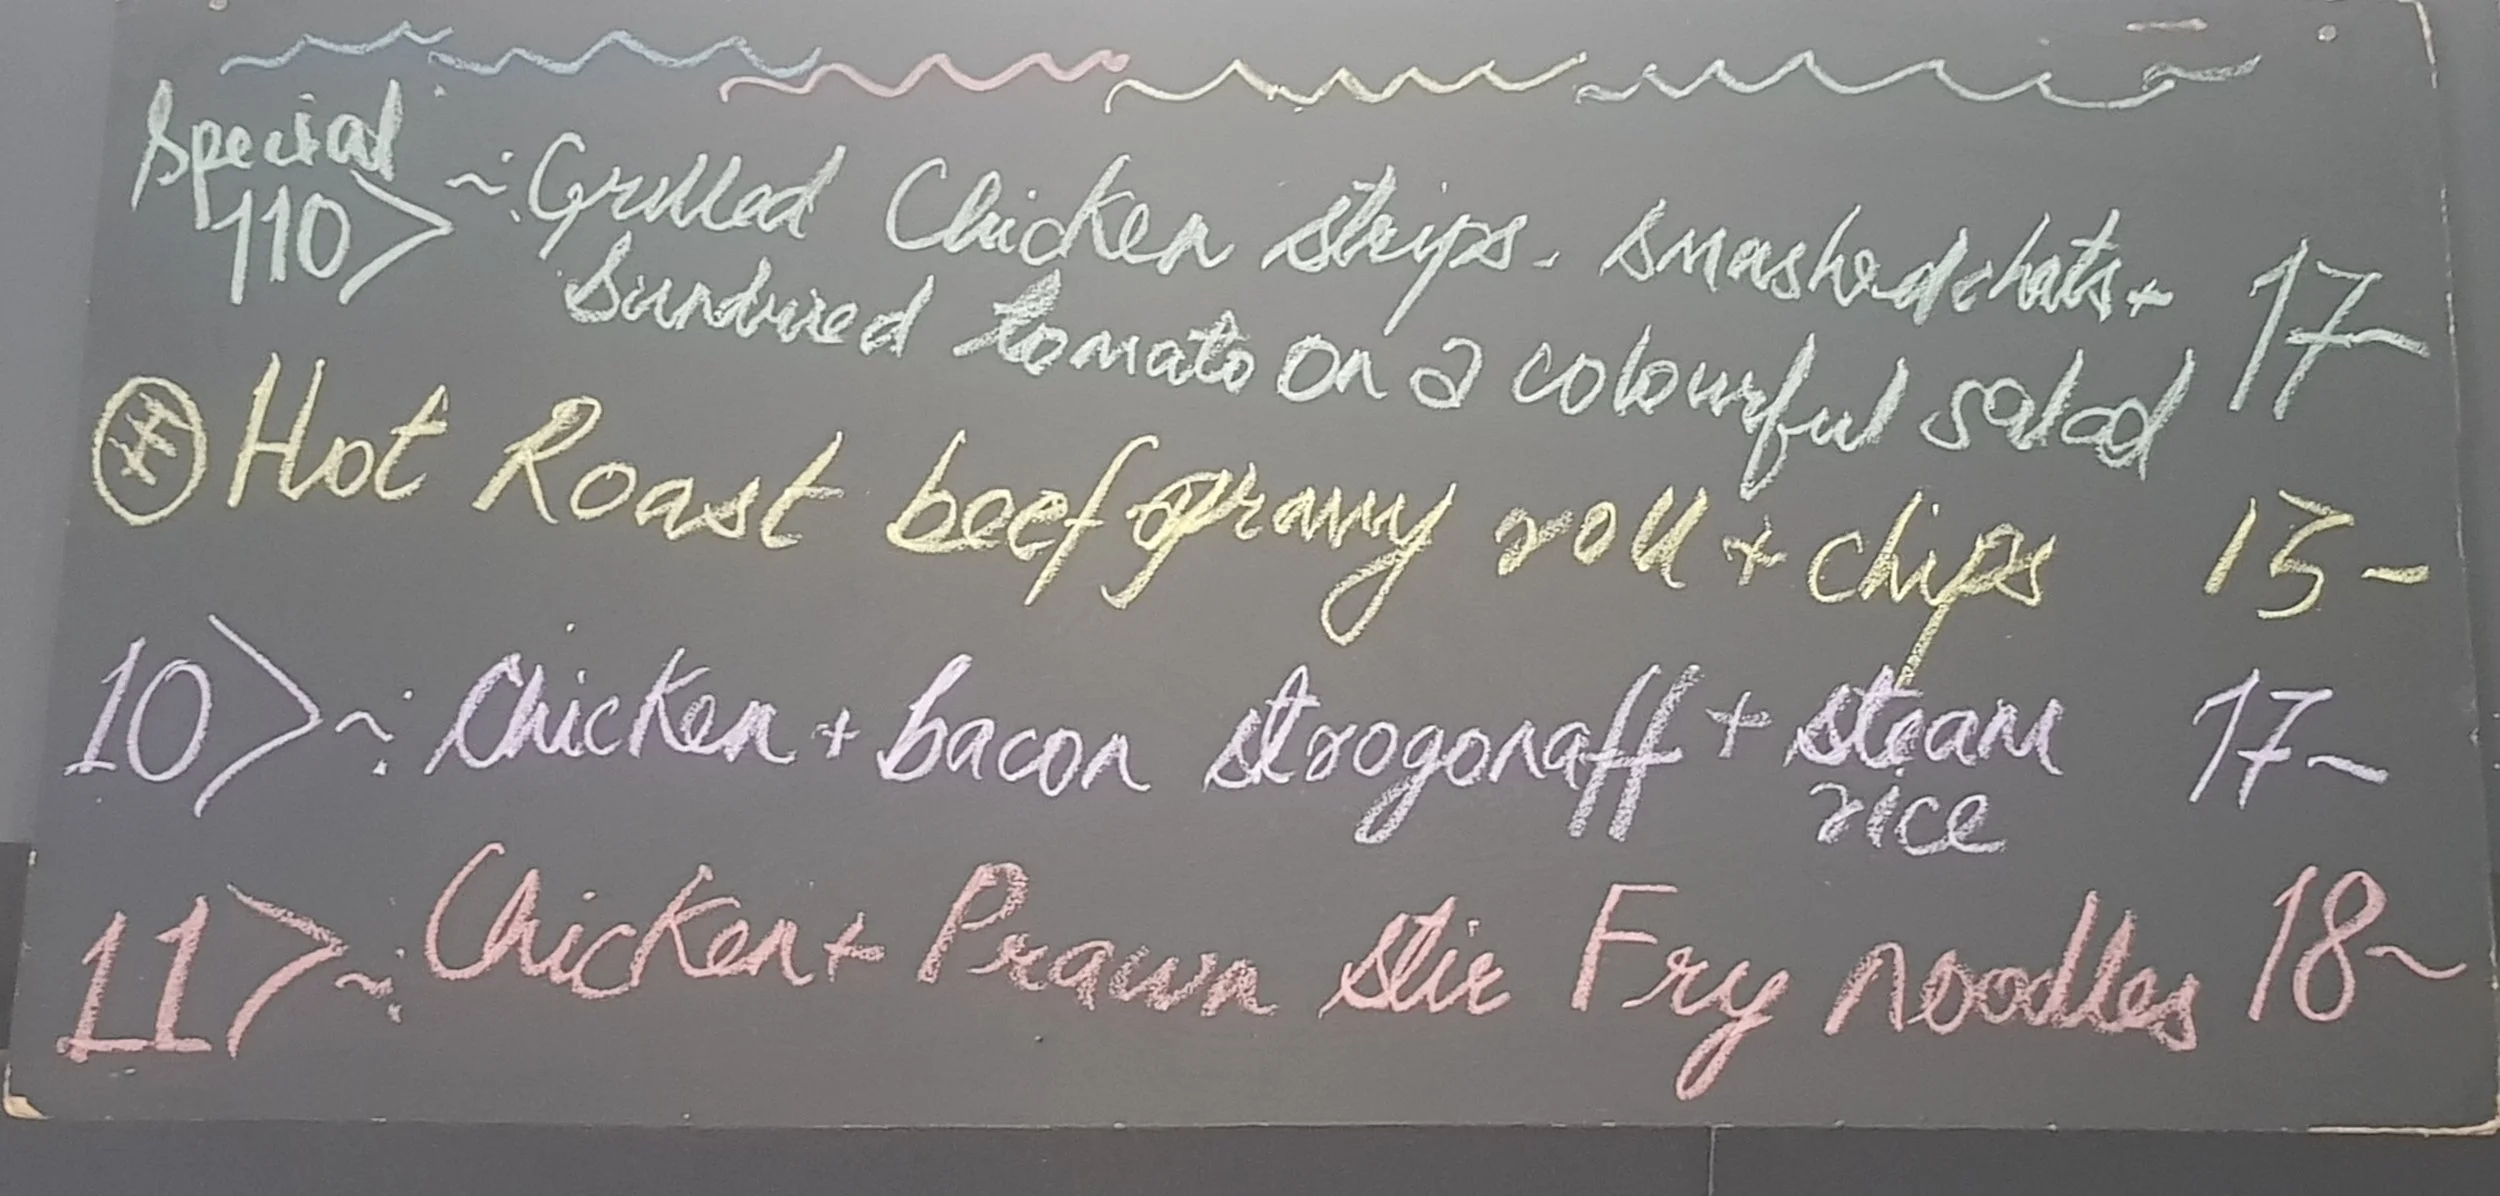 Special
110> ~: Grilled Chicken strips. smashed chats + 17~
Sundried tomato on a colourful salad
Hot Roast beef gravy roll + chips 15-
10> ~: Chicken + bacon strogonaff + steam 17~
rice
11> ~: Chicken + Prawn stir Fry noodles 18~